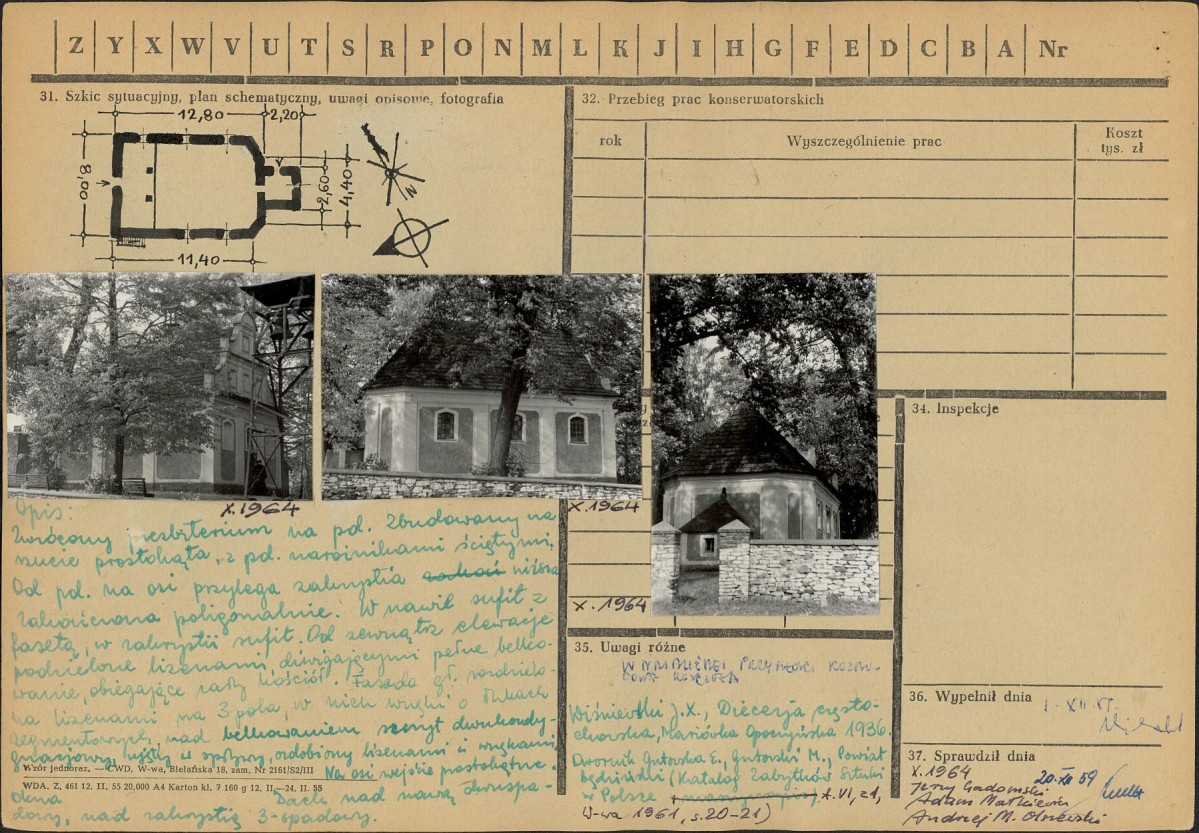 Z Y X W V U T S R P O N M L K J I H G F E D C B A Nr
31. Szkic sytuacyjny, plan schematyczny, uwagi opisowe, fotografia
12,80 2,20
8,00
2,60 4,40
N
11,40
X.1964
Opis:
Zwrócony presbiterium na pd. Zbudowany na
rzucie prostokąta, z pd. narożnikami ściętymi.
Od pd. na osi przylega zakrystia niższa
zakończona poligonalnie. W nawie sufit z
fasetą, w zakrystii sufit. Od zewnątrz elewacje
podzielone lizenami, dźwigającymi pełne belko-
wanie, obiegające cały kościół. Fasada gł. rozdzielo-
na lizenami na 3 pola, w nich wnęki o łukach
segmentowych, nad belkowaniem szczyt dwukondy-
gnacjowy, ujęty w spływy, ozdobiony lizenami i wnękami
Na osi wejście prostokątne.
Wzór jednoraz. — CWD, W-wa, Bielańska 18, zam. Nr 2161/S2/III
WDA. Z. 461 12. II. 55 20,000 A4 Karton kl. 7 160 g 12. II.—24. II. 55
Dach nad nawą dwuspa-
dowy, nad zakrystią 3-spadowy.
32. Przebieg prac konserwatorskich
rok Wyszczególnienie prac Koszt
tys. zł
X.1964
X.1964
34. Inspekcje
35. Uwagi różne
W NAJBLIŻSZEJ PRZYSZŁOŚCI ROZBU-
DOWA KOŚCIOŁA
Wiśniewski J. X., Diecezja często-
chowska, Mariówka Opoczyńska 1936.
Dwornik Gutowska E., Gutowski M., Powiat
będziński (Katalog Zabytków Sztuki
w Polsce t. VI, z 1,
W-wa 1961, s. 20-21)
36. Wypełnił dnia
37. Sprawdził dnia
X.1964 20.XII 59
Jerzy Gadomski
Adam Małkiewicz
Andrzej M. Olszewski